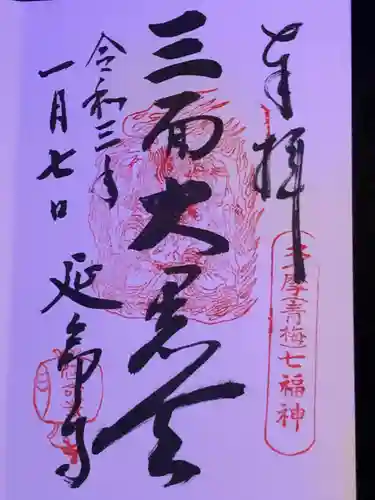 奉拝
多摩(青梅)七福神
三面大黒天
令和三年
一月七日
延命寺